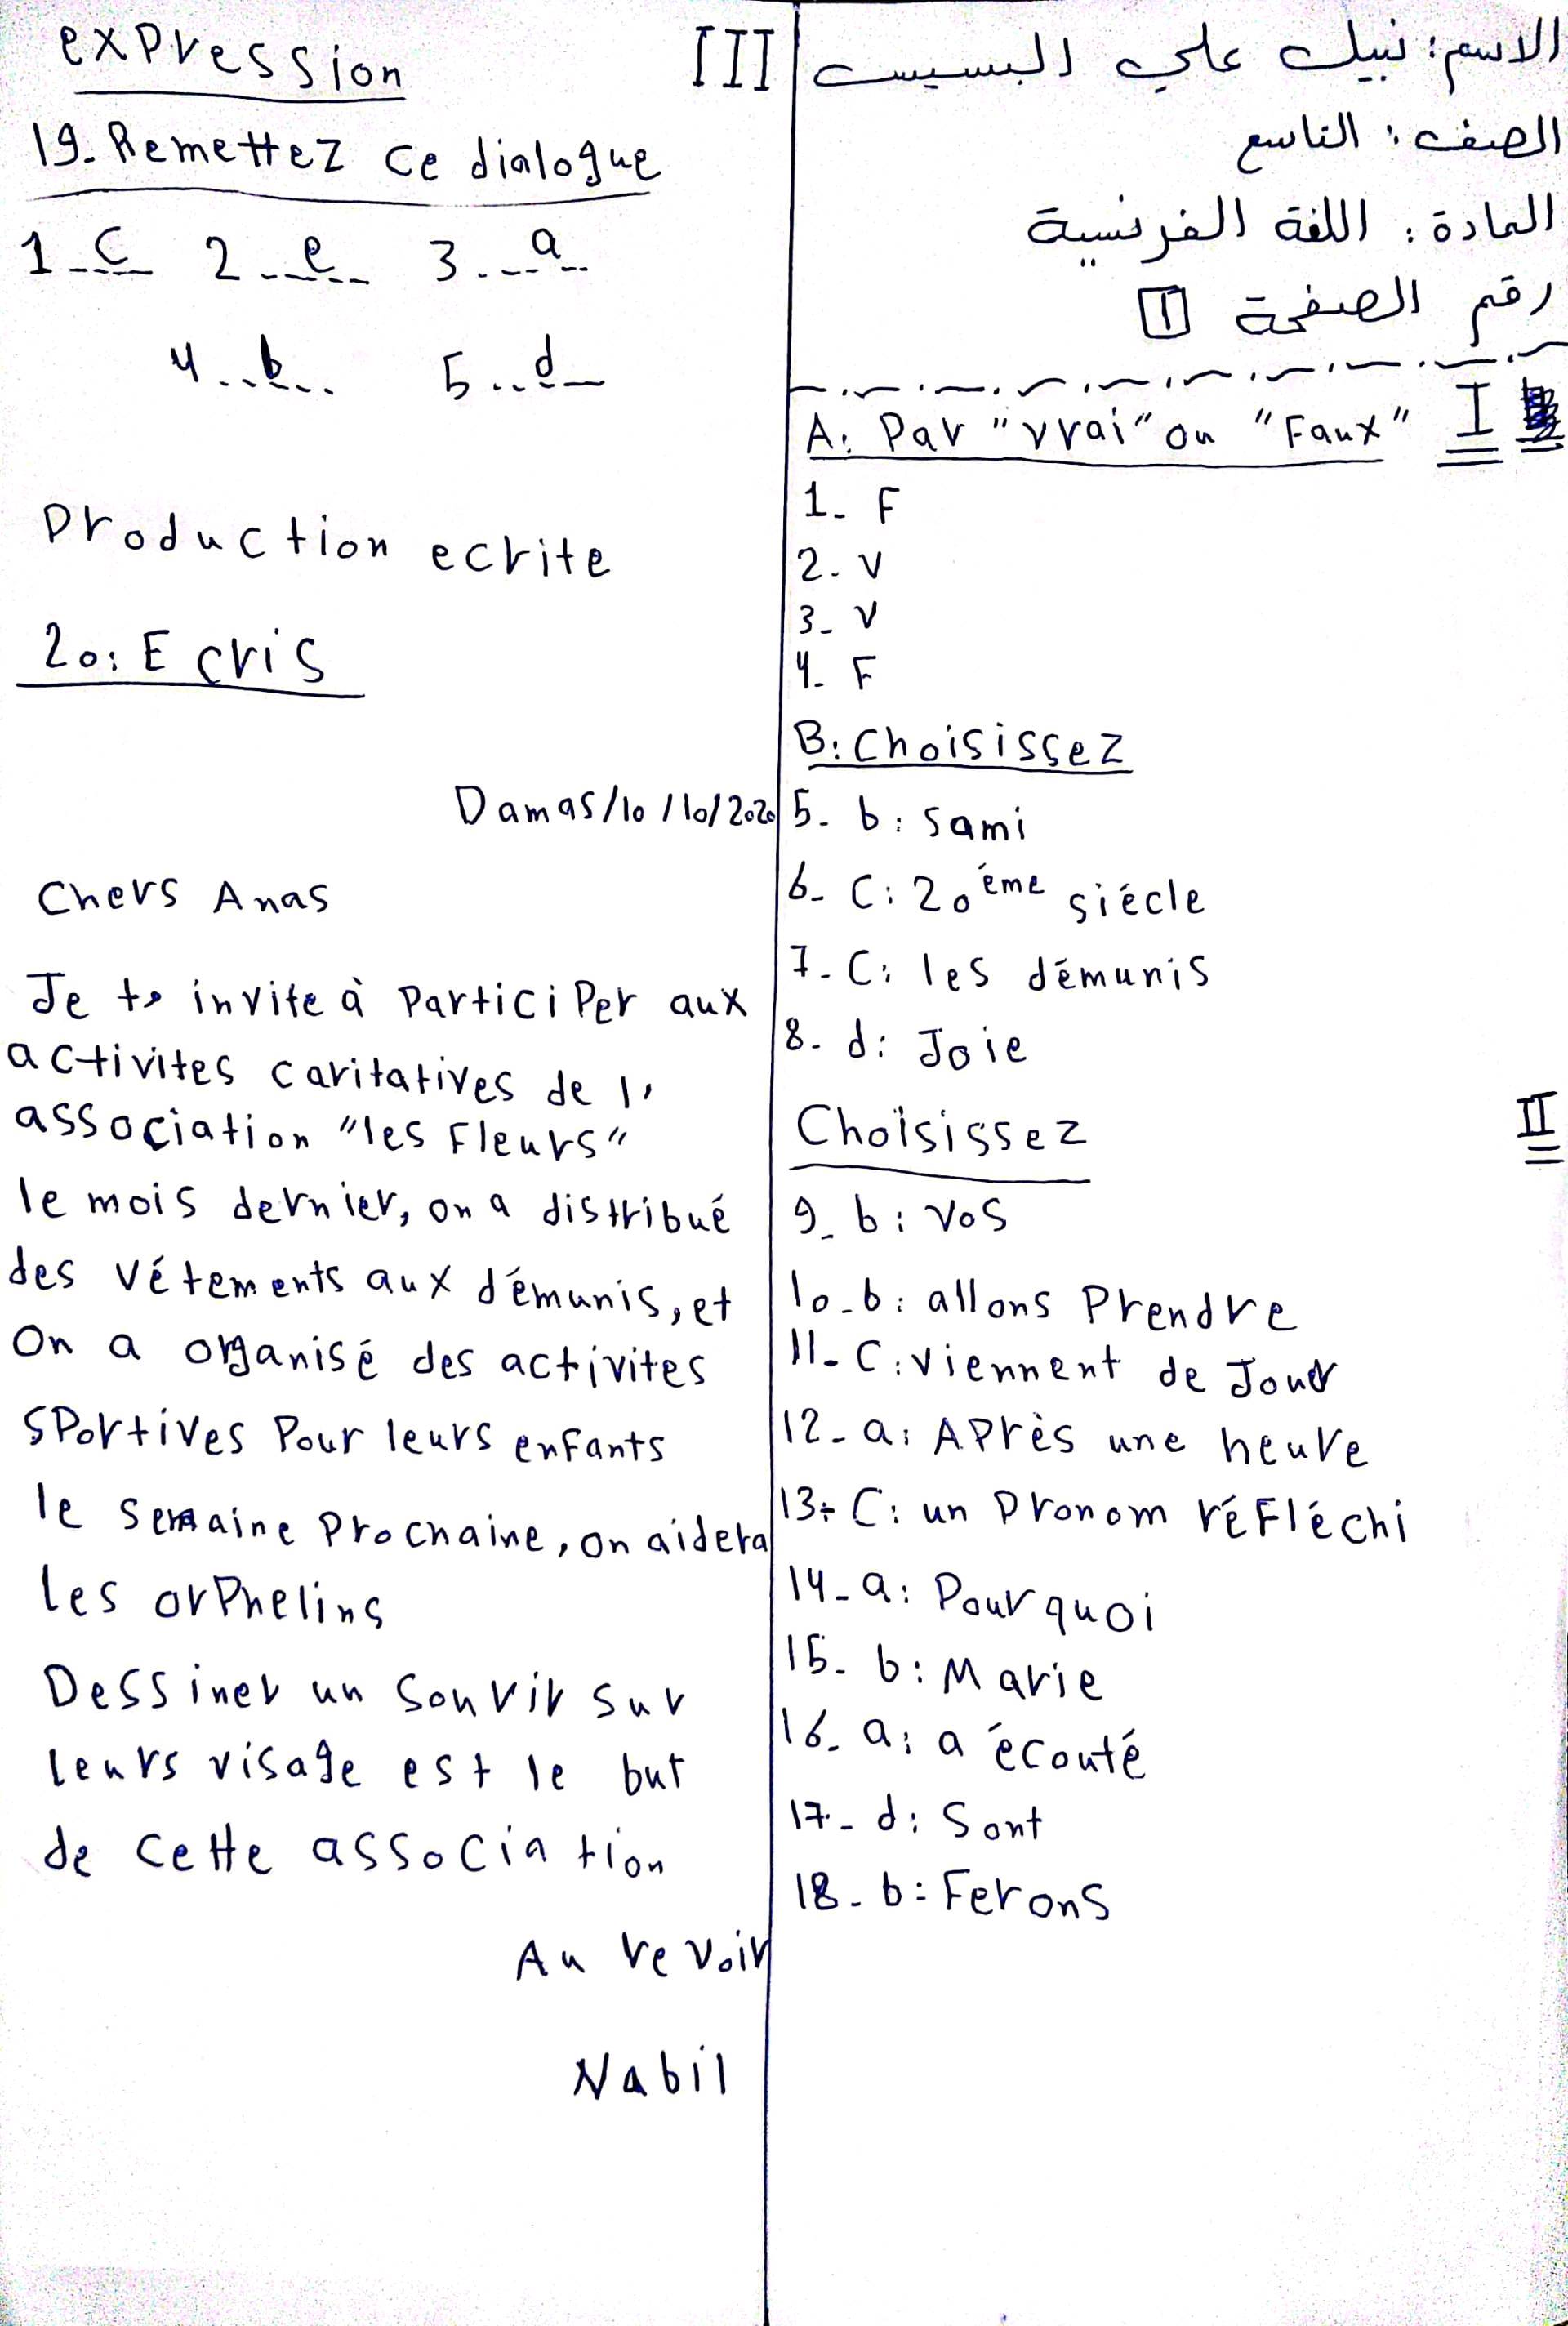 الاسم: نبيل علي البسيس
الصف: التاسع
المادة: اللغة الفرنسية
رقم الصفحة 1
I
A: Par "vrai" ou "Faux"
1- F
2- V
3- V
4- F
B: Choisissez
5- b: Sami
6- C: 20ème siécle
7- C: les démunis
8- d: Joie
II
Choisissez
9- b: Vos
10-b: allons Prendre
11- C: viennent de Jouer
12- a: APrès une heure
13- C: un Pronom réFléchi
14- a: Pour quoi
15- b: Marie
16- a: a écouté
17- d: Sont
18- b: Ferons
III
exPression
19- Remettez ce dialogue
1 c 2 e 3 a
4 b 5 d
Production ecrite
20: Ecris
Damas/10/10/2020
Chers Anas
Je t' invite à ParticiPer aux
activites caritatives de l'
association "les Fleurs"
le mois dernier, on a distribué
des vétements aux démunis, et
On a organisé des activites
SPortives Pour leurs enFants
le semaine Prochaine, on aidera
les orPhelins
Dessiner un Sourir sur
leurs visage est le but
de cette association
Au revoir
Nabil